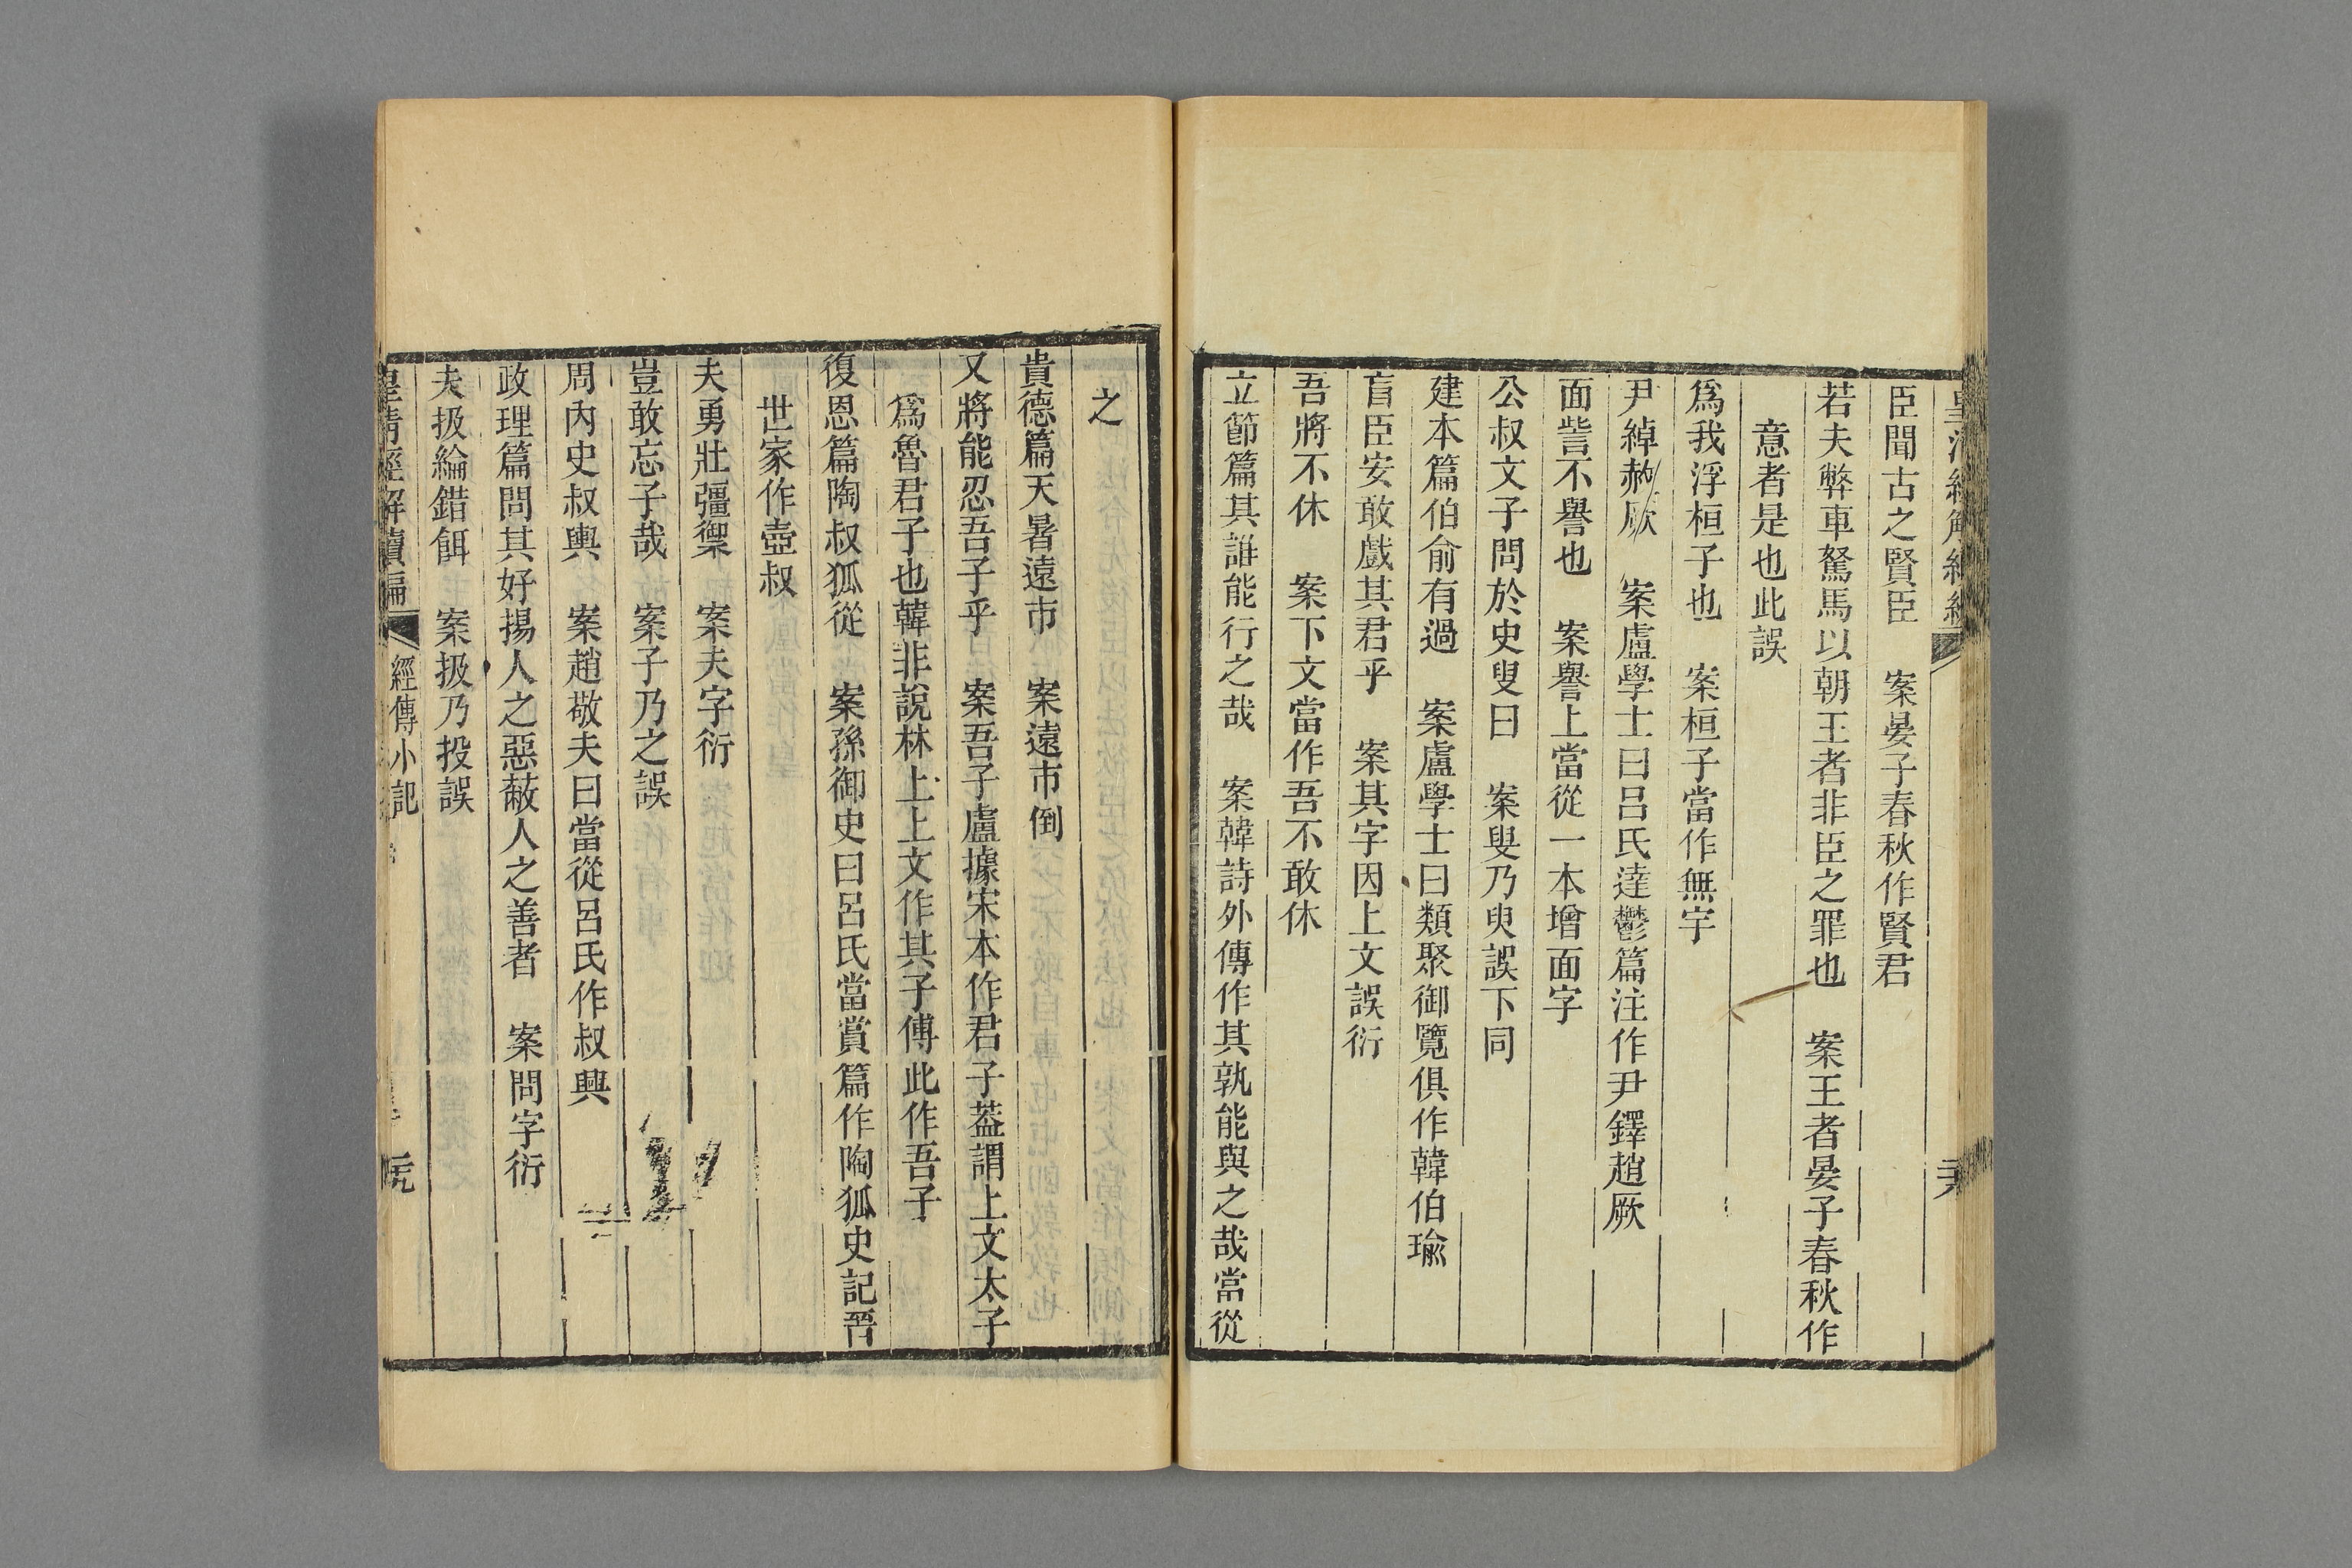 臣聞古之賢臣　案晏子春秋作賢君
若夫弊車駑馬以朝王者非臣之罪也　案王者晏子春秋作
意者是也此誤
爲我浮桓子也　案桓子當作無宇
尹綽赦厥　案盧學士曰呂氏達鬱篇注作尹鐸趙厥
面訾不譽也　案譽上當從一本增面字
公叔文子問於史叟曰　案叟乃臾誤下同
建本篇伯俞有過　案盧學士曰類聚御覽俱作韓伯瑜
盲臣安敢戲其君乎　案其字因上文誤衍
吾將不休　案下文當作吾不敢休
立節篇其誰能行之哉　案韓詩外傳作其孰能與之哉當從
之
貴德篇天暑遠市　案遠市倒
又將能忍吾子乎　案吾子盧據宋本作君子葢謂上文太子
爲魯君子也韓非說林上上文作其子傅此作吾子
復恩篇陶叔狐從　案孫御史曰呂氏當賞篇作陶狐史記晉
世家作壺叔
夫勇壯彊禦　案夫字衍
豈敢忘子哉　案子乃之誤
周內史叔輿　案趙敬夫曰當從呂氏作叔興
政理篇問其好揚人之惡蔽人之善者　案問字衍
夫扱綸錯餌　案扱乃投誤
皇清經解續編　經傳小記